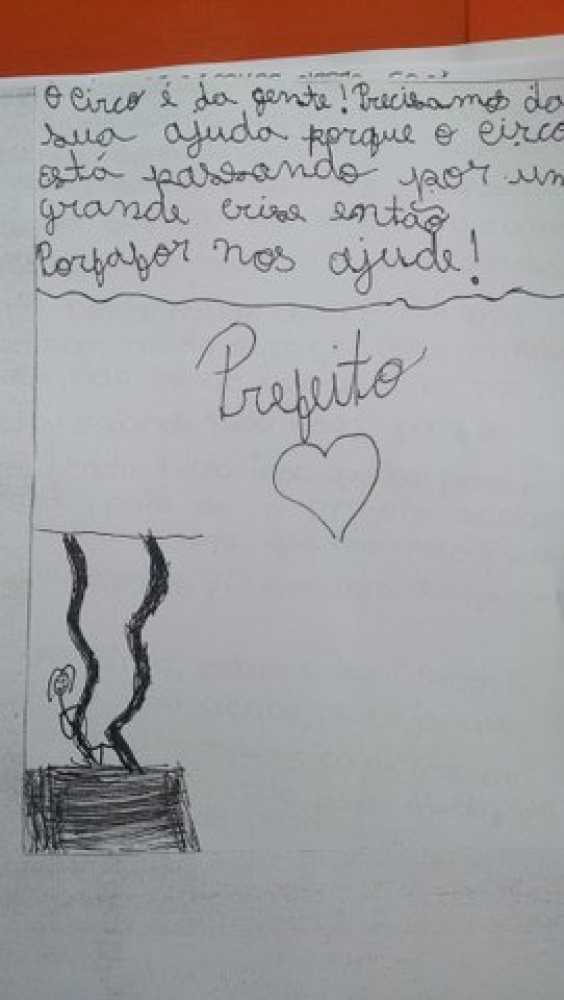 O Circo é da gente! Precisamos da
sua ajuda porque o circo
está passando por um
grande crise então
Porfafor nos ajude!
Prefeito